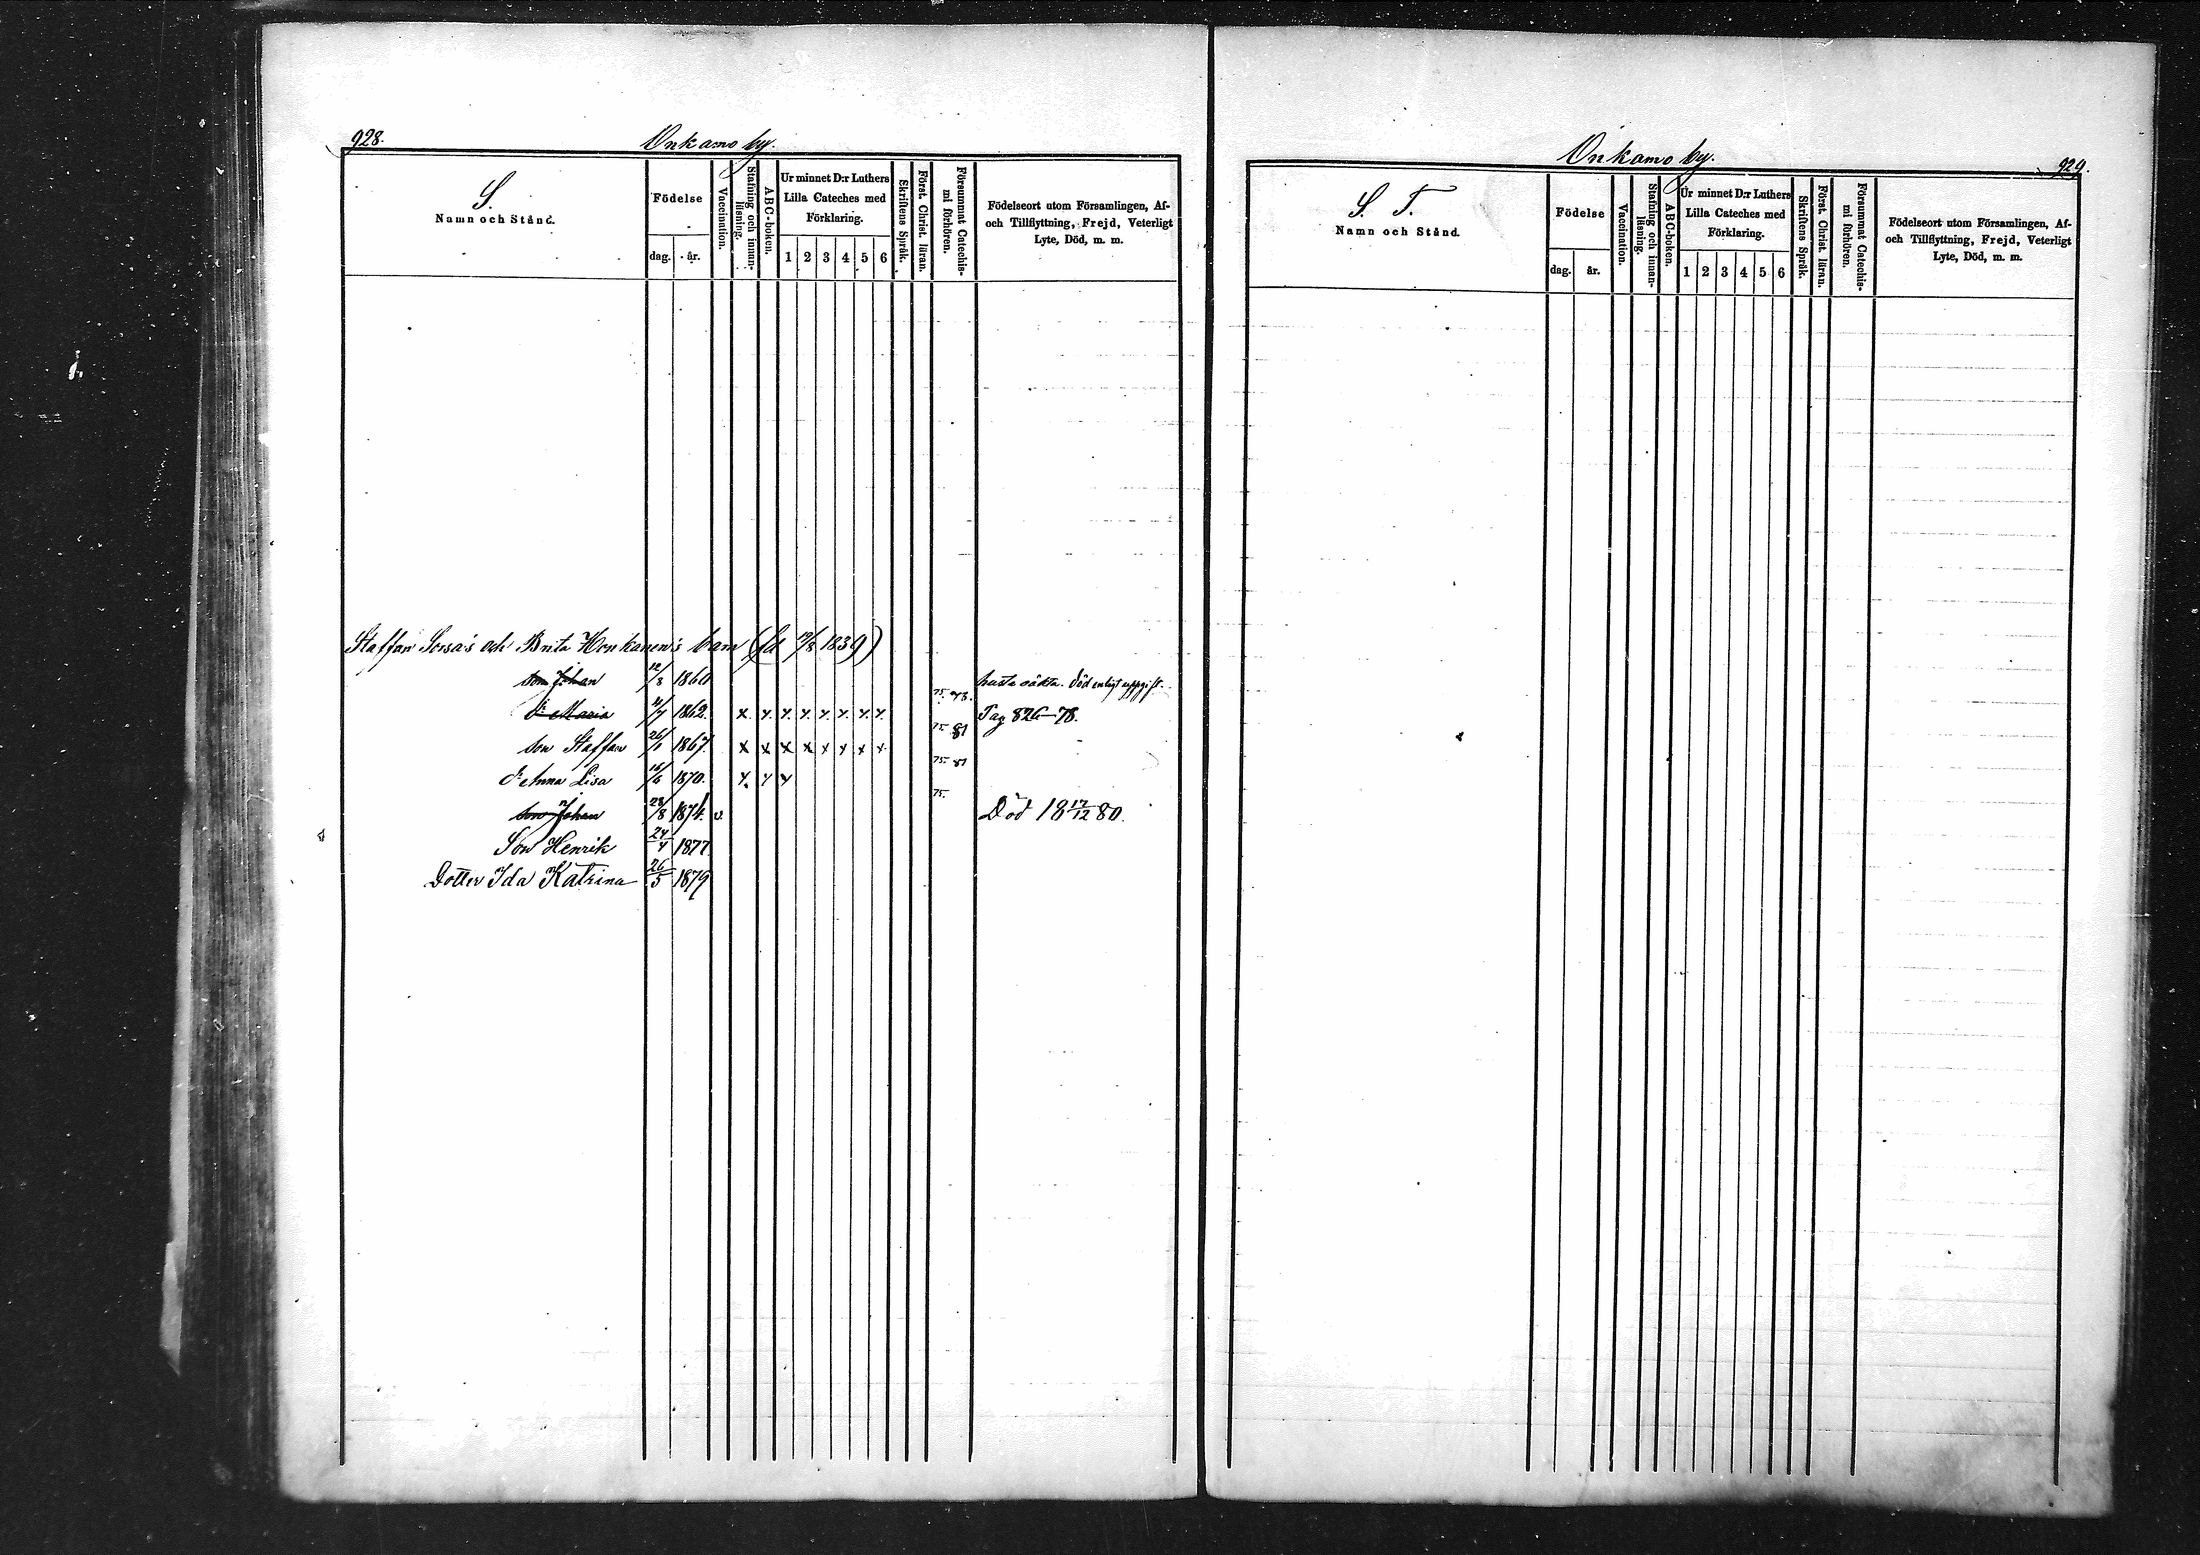 928.
Onkamo by.
S.
Namn och Stånd.
Födelse
dag. år.
Vaccination.
Stafning och innan-läsning.
ABC-boken.
Ur minnet D:r Luthers
Lilla Cateches med
Förklaring.
1 2 3 4 5 6
Skriftens Språk.
Först. Christ. läran.
Försummat Catechis-mi förhören.
Födelseort utom Församlingen, Af-
och Tillflyttning, Frejd, Veterligt
Lyte, Död, m. m.
Staffan och Brita Honkanen's barn (fd 19/8 1839)
son Johan 12/8 1860 Död enligt uppgift.
dr Maria 11/7 1862. x x x x x x x x 75. 78. Pag 826–78.
son Staffan 26/1 1867. x x x x x x x x 75. 81
dr Anna Lisa 16/6 1870. x x x 75. 81
son Johan 28/8 1874. v. 75. Död 18 17/12 80.
Son Henrik 24/4 1877
Dotter Ida Katrina 26/5 1879
Onkamo by.
929.
S. T.
Namn och Stånd.
Födelse
dag. år.
Vaccination.
Stafning och innan-läsning.
ABC-boken.
Ur minnet D:r Luthers
Lilla Cateches med
Förklaring.
1 2 3 4 5 6
Skriftens Språk.
Först. Christ. läran.
Försummat Catechis-mi förhören.
Födelseort utom Församlingen, Af-
och Tillflyttning, Frejd, Veterligt
Lyte, Död, m. m.